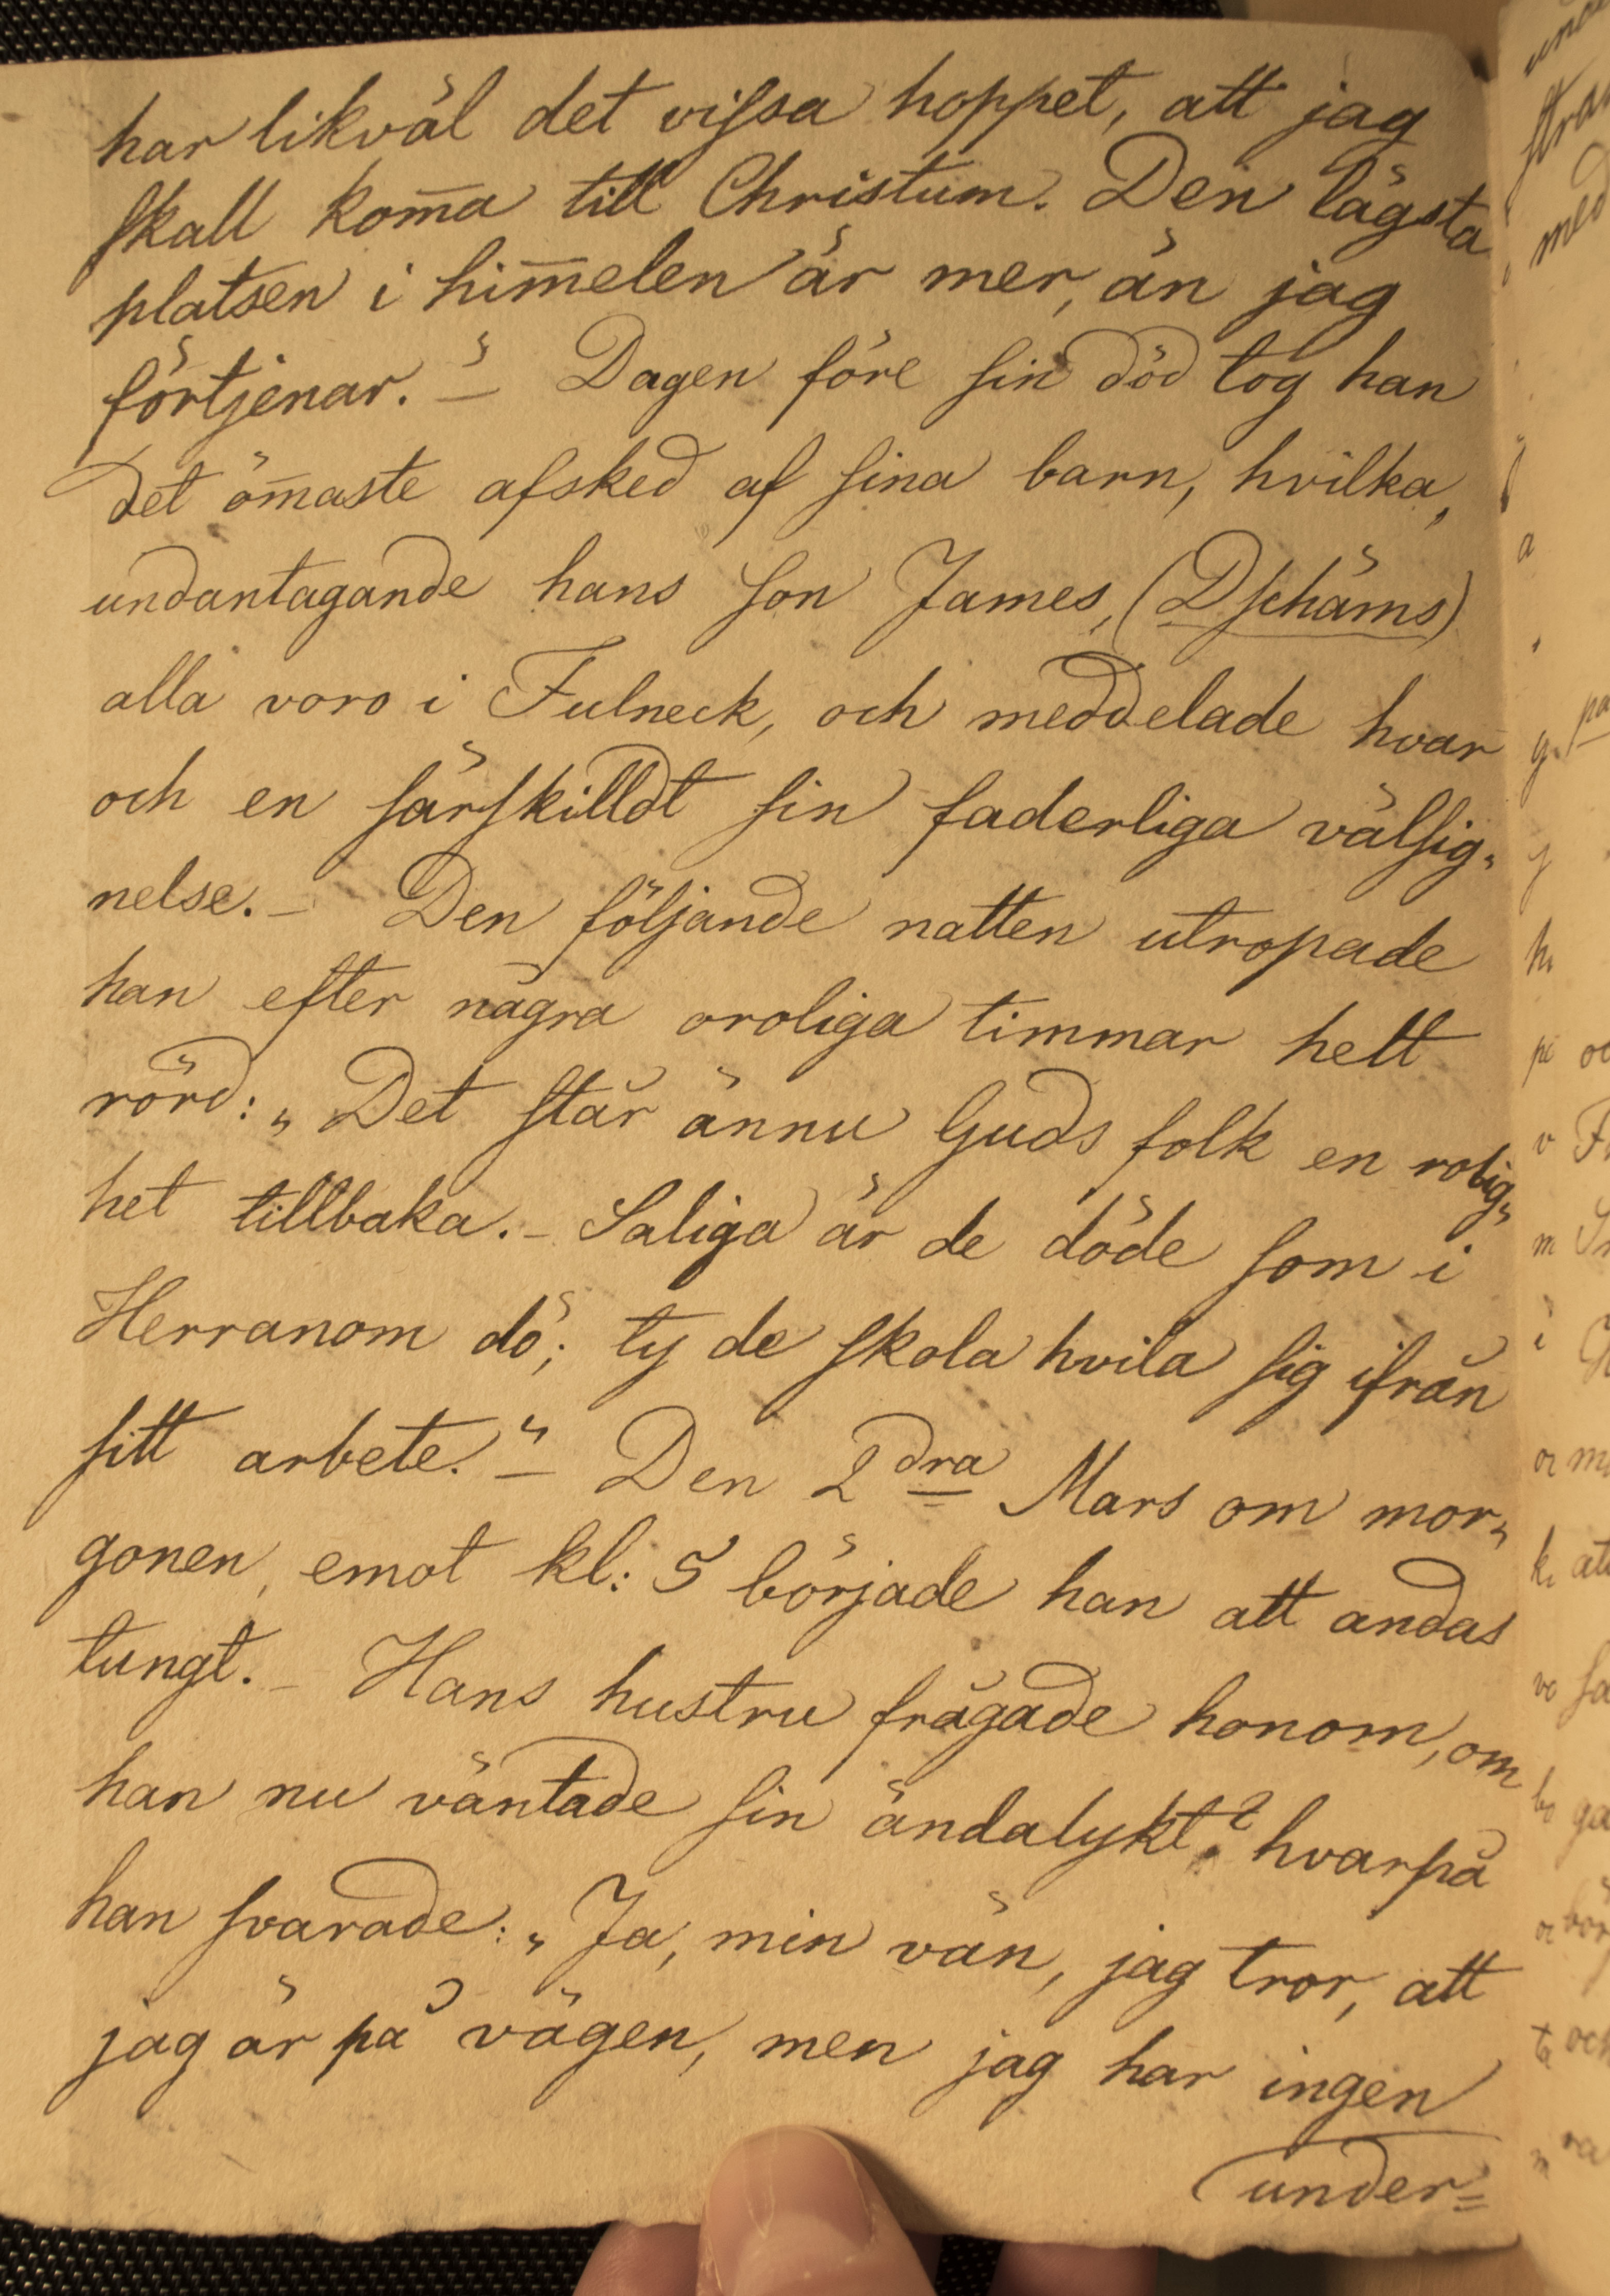 har likväl det vissa hoppet, att jag
skall kom̅a till Christum. Den lägsta
platsen i him̅elen är mer, än jag
förtjenar." – Dagen före sin död tog han
det öm̅aste afsked af sina barn, hvilka,
undantagande hans son James, (Dschäms)
alla voro i Fulneck, och meddelade hvar
och en särskilldt sin faderliga välsig„
nelse. – Den följande natten utropade
han efter några oroliga timmar helt
rörd: „Det står ännu Guds folk en rolig„
het tillbaka. – Saliga är de döde som i
Herranom dö; ty de skola hvila sig ifrån
sitt arbete." – Den 2dra Mars om mor„
gonen, emot kl: 5 började han att andas
tungt. – Hans hustru frågade honom, om
han nu väntade sin ändalykt? hvarpå
han svarade: „Ja, min vän, jag tror, att
jag är på vägen, men jag har ingen
under=